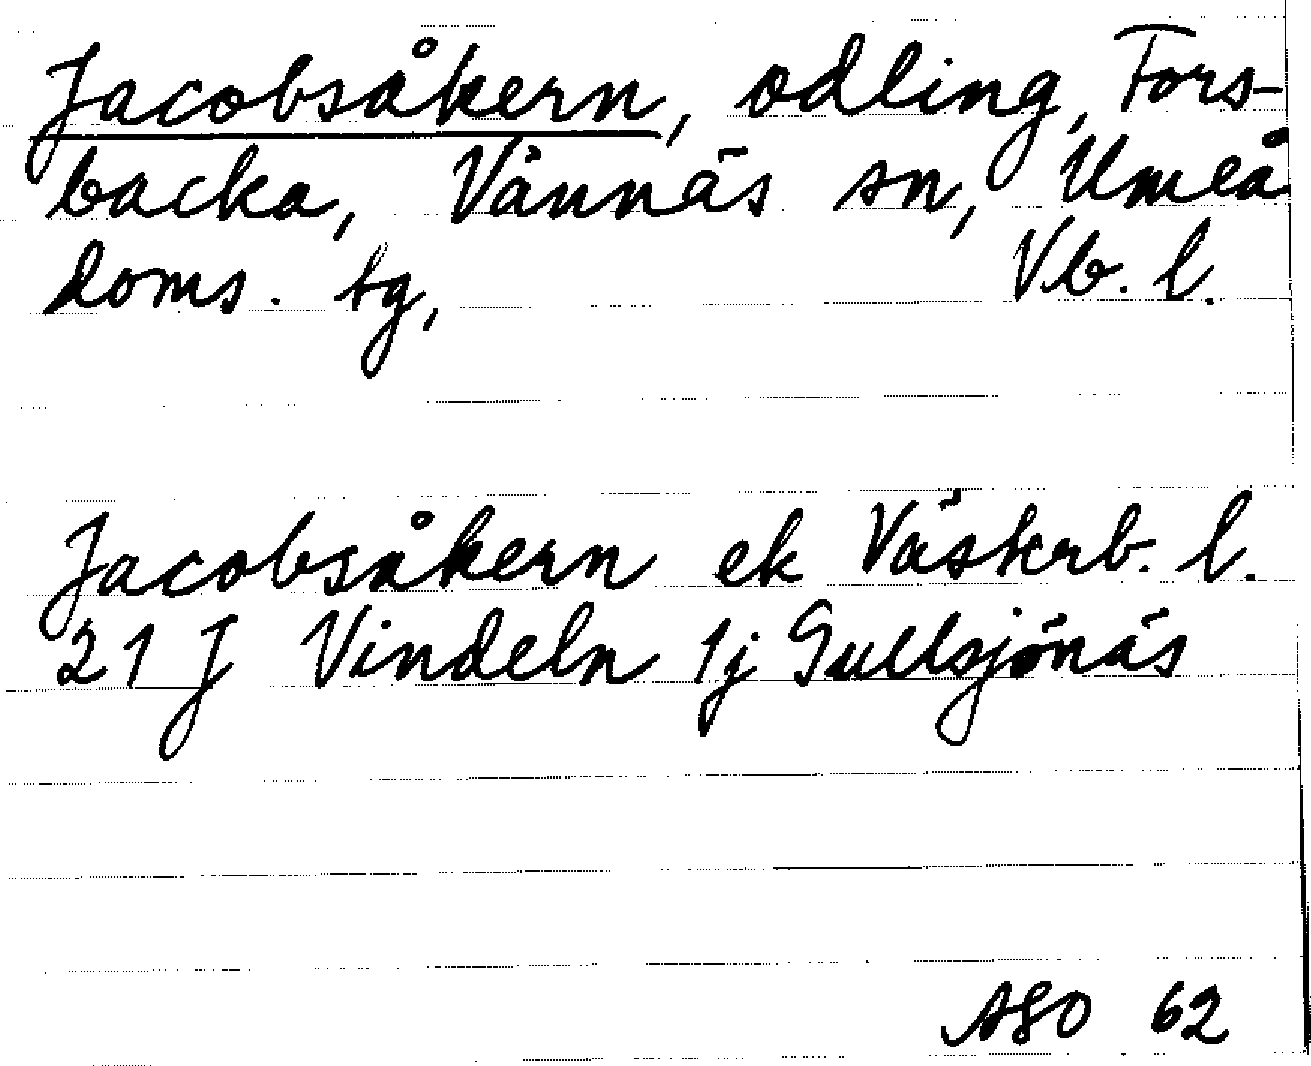 Jacobsåkern, odling, Fors-
backa, Vännäs sn, Umeå
doms. tg, Vb. l.
Jacobsåkern ek Västerb. l.
21 J Vindeln 1j Gullsjönäs
ASO 62